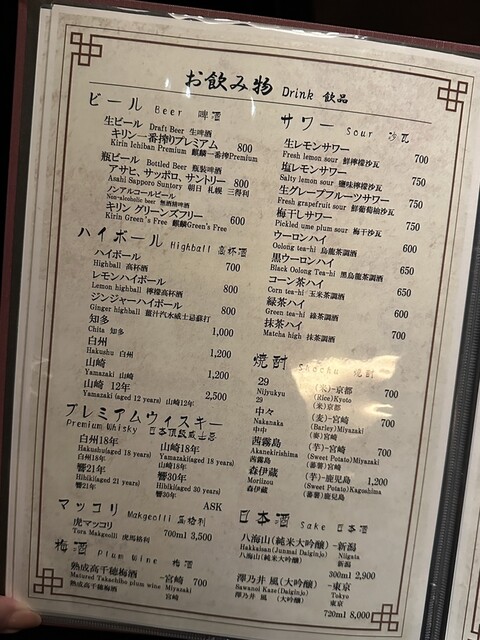 お飲み物 Drink 飲品
ビール Beer 啤酒
生ビール Draft Beer 生啤酒
キリン一番搾りプレミアム 800
Kirin Ichiban Premium 麒麟一番搾Premium
瓶ビール Bottled Beer 瓶装啤酒
アサヒ、サッポロ、サントリー 800
Asahi Sapporo Suntory 朝日 札幌 三得利
ノンアルコールビール
Non-alcoholic beer 無酒精啤酒
キリン グリーンズフリー 600
Kirin Green's Free 麒麟Green's Free
ハイボール Highball 高杯酒
ハイボール 700
Highball 高杯酒
レモンハイボール 800
Lemon highball 檸檬高杯酒
ジンジャーハイボール 800
Ginger highball 薑汁汽水威士忌蘇打
知多 1,000
Chita 知多
白州 1,200
Hakushu 白州
山崎 1,200
Yamazaki 山崎
山崎 12年 2,500
Yamazaki (aged 12 years) 山崎12年
プレミアムウィスキー
Premium Whisky 日本頂級威士忌
白州18年 山崎18年
Hakushu(aged 18 years) Yamazaki(aged 18 years)
白州18年 山崎18年
響21年 響30年
Hibiki(aged 21 years) Hibiki(aged 30 years)
響21年 響30年
ASK
マッコリ Makgeolli 馬格利
虎マッコリ 700ml 3,500
Tora Makgeolli 虎馬格利
梅酒 Plum wine 梅酒
熟成高千穂梅酒 −宮崎 700
Matured Takachiho plum wine Miyazaki
熟成高千穂梅酒 宮崎
サワー Sour 沙瓦
生レモンサワー 700
Fresh lemon sour 鮮檸檬沙瓦
塩レモンサワー 750
Salty lemon sour 鹽味檸檬沙瓦
生グレープフルーツサワー 750
Fresh grapefruit sour 鮮葡萄柚沙瓦
梅干しサワー 750
Pickled ume plum sour 梅干沙瓦
ウーロンハイ 600
Oolong tea-hi 烏龍茶調酒
黒ウーロンハイ 650
Black Oolong Tea-hi 黑烏龍茶調酒
コーン茶ハイ 650
Corn tea-hi 玉米茶調酒
緑茶ハイ 600
Green tea-hi 綠茶調酒
抹茶ハイ 700
Matcha high 抹茶調酒
焼酎 Shochu 燒酎
29 (米)−京都 700
Nijyukyu (Rice)Kyoto
29 (米)京都
中々 (麦)−宮崎 700
Nakanaka (Barley)Miyazaki
中中 (麥)宮崎
茜霧島 (芋)−宮崎 700
Akanekirishima (Sweet Potato)Miyazaki
茜霧島 (蕃薯)宮崎
森伊蔵 (芋)−鹿児島 1,200
Moriizou (Sweet Potato)Kagoshima
森伊蔵 (蕃薯)鹿兒島
日本酒 Sake 日本酒
八海山(純米大吟醸) −新潟
Hakkaisan(Junmai Daiginjo) Niigata
八海山(純米大吟醸) 新潟
300ml 2,900
澤乃井 凰(大吟醸) −東京
Sawanoi Kaze(Daiginjo) Tokyo
澤乃井 凰 (大吟醸) 東京
720ml 8,000